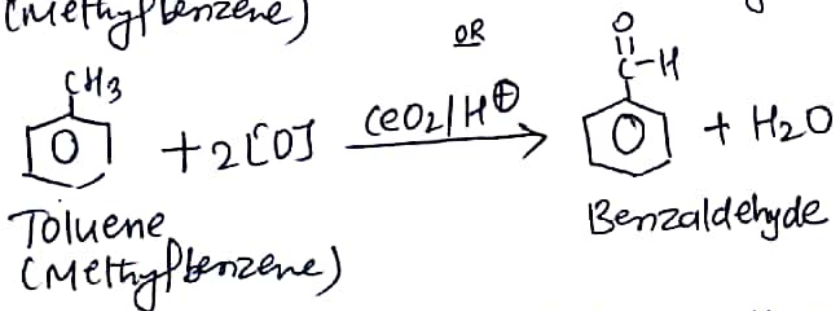 (Methylbenzene)
OR
CH3
+ 2[O] CeO2/H⊕
O
C-H
+ H2O
Toluene
(Methylbenzene)
Benzaldehyde